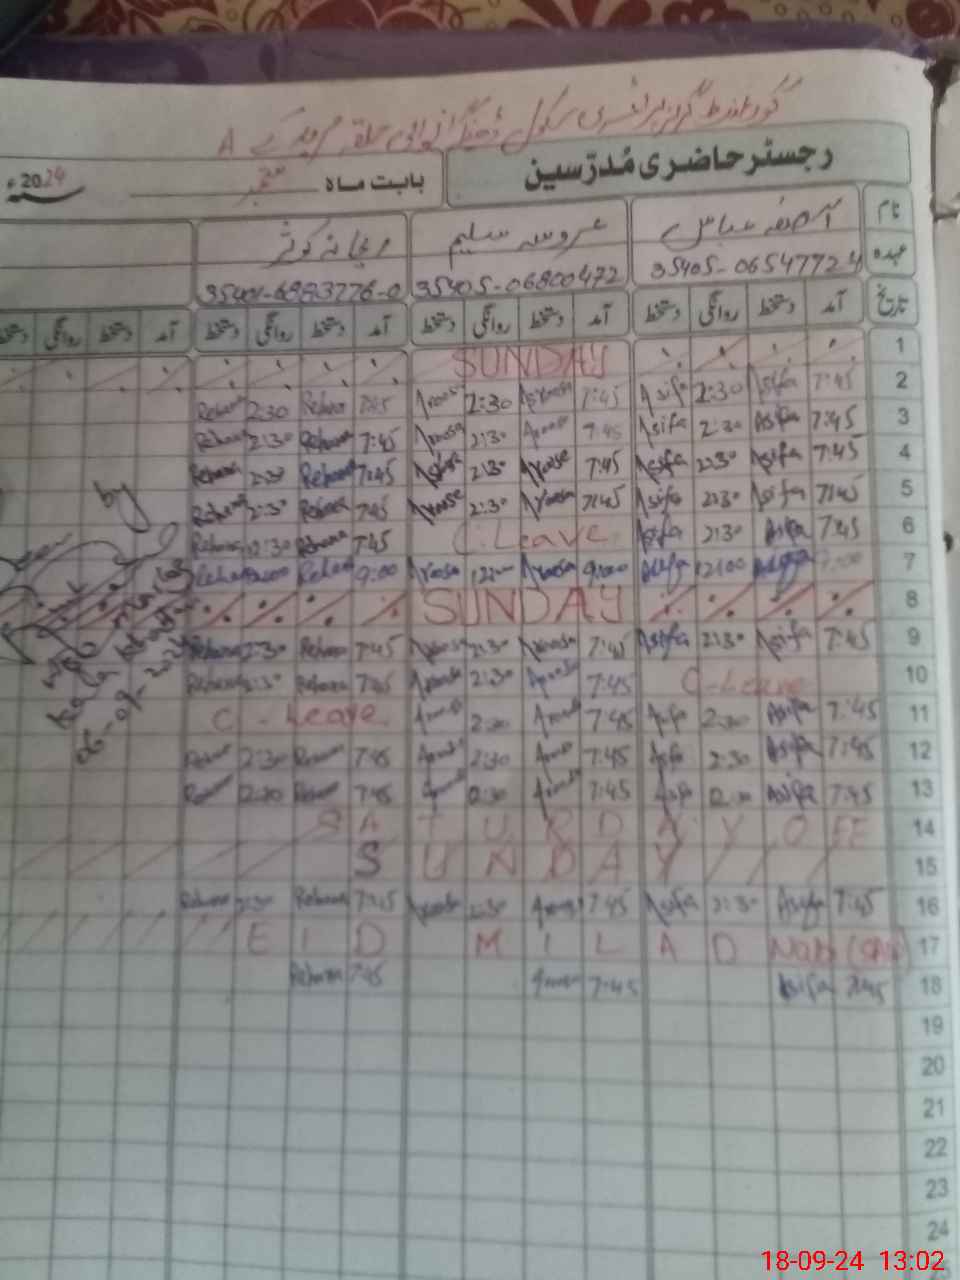 گورنمنٹ گرلز پرائمری سکول A
رجسٹر حاضری مُدرّسین
بابت ماہ ستمبر 2024ء
نام آصفہ عباس عروسہ سلیم ریحانہ کوثر
عہدہ 35405-0654772-4 35405-0680047-2 35401-6883776-0
تاریخ آمد دستخط روانگی دستخط آمد دستخط روانگی دستخط آمد دستخط روانگی دستخط آمد دستخط روانگی دستخط
1 SUNDAY
2 7:45 Asifa 2:30 Asifa 7:45 Aroosa 2:30 Aroosa 7:45 Rehana 2:30 Rehana
3 7:45 Asifa 2:30 Asifa 7:45 Aroosa 2:30 Aroosa 7:45 Rehana 2:30 Rehana
4 7:45 Asifa 2:30 Asifa 7:45 Aroosa 2:30 7:45 Rehana 2:30 Rehana
5 7:45 Asifa 2:30 Asifa 7:45 Aroosa 2:30 Aroosa 7:45 Rehana 2:30 Rehana
6 7:45 Asifa 2:30 Asifa C.Leave 7:45 Rehana 2:30 Rehana
7 9:00 Asifa 12:00 Asifa 9:00 Aroosa 12:00 Aroosa 9:00 Rehana 12:00 Rehana
8 SUNDAY
9 7:45 Asifa 2:30 Asifa 7:45 Aroosa 2:30 Aroosa 7:45 Rehana 2:30 Rehana
10 C-Leave 7:45 Aroosa 2:30 Aroosa 7:45 Rehana 2:30 Rehana
11 7:45 Asifa 2:30 Asifa 7:45 Aroosa 2:30 Aroosa C-Leave
12 7:45 Asifa 2:30 Asifa 7:45 Aroosa 2:30 Aroosa 7:45 Rehana 2:30 Rehana
13 7:45 Asifa 2:30 Asifa 7:45 Aroosa 2:30 Aroosa 7:45 Rehana 2:30 Rehana
14 SATURDAY OFF
15 SUNDAY
16 7:45 Asifa 2:30 Asifa 7:45 Aroosa 2:30 Aroosa 7:45 Rehana 2:30 Rehana
17 EID MILAD Nabi (SAW)
18 7:45 Asifa 7:45 Aroosa 7:45 Rehana
19
20
21
22
23
24
by
18-09-24 13:02